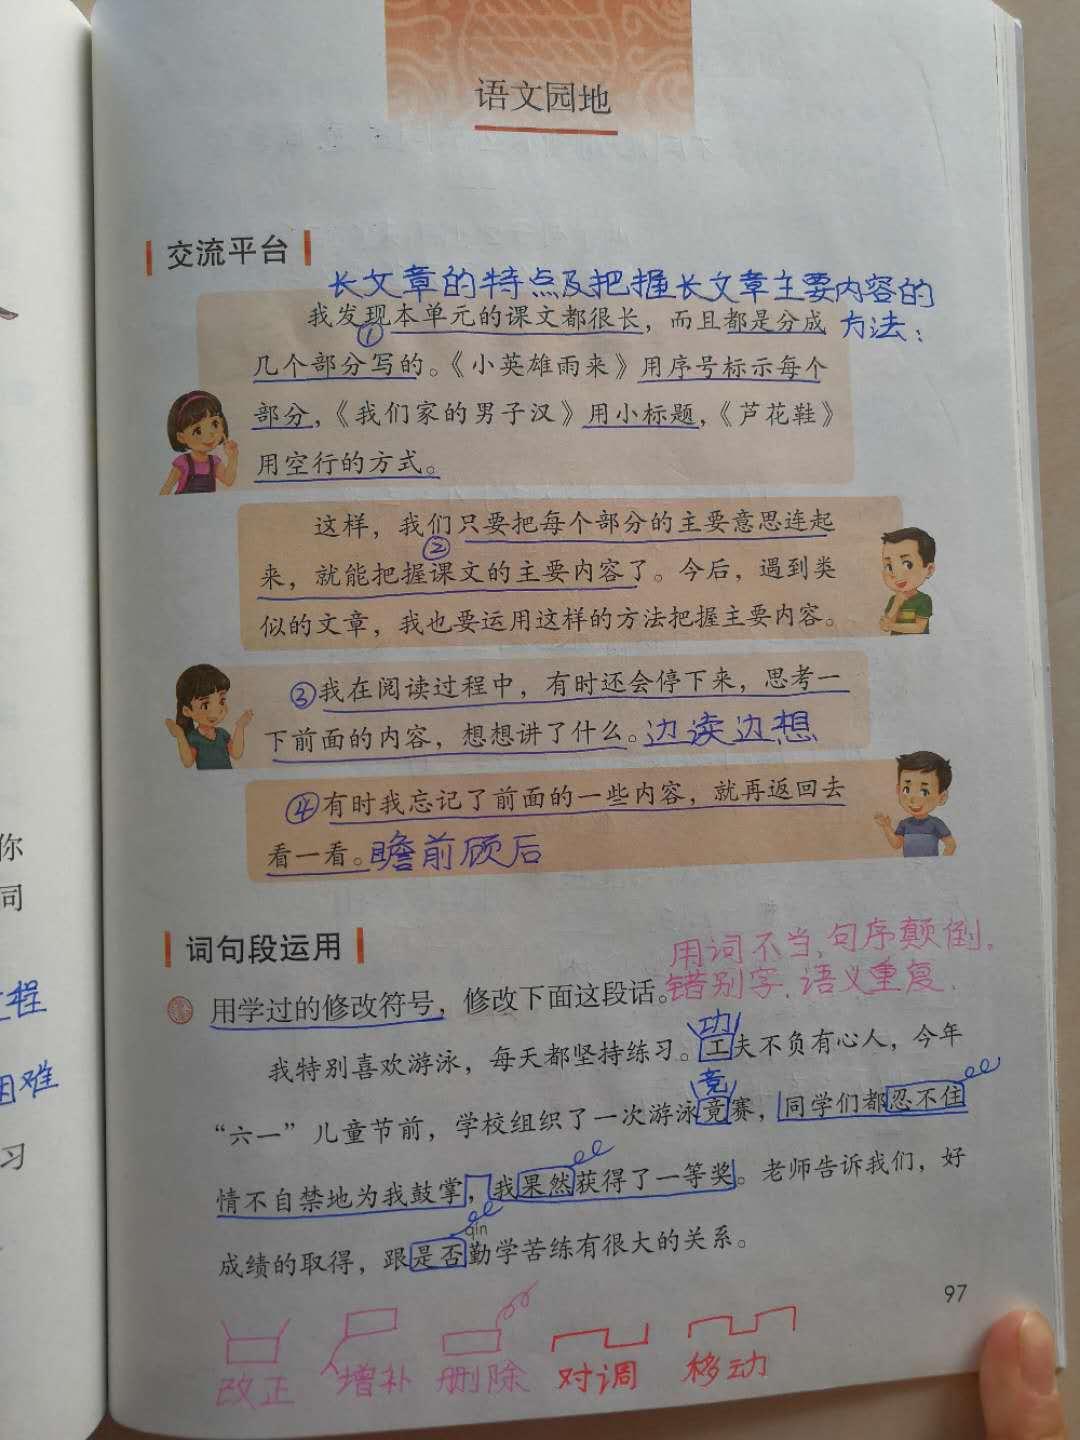 语文园地
交流平台
长文章的特点及把握长文章主要内容的
方法：
我发现本单元的课文都很长，而且都是分成
①
几个部分写的。《小英雄雨来》用序号标示每个
部分，《我们家的男子汉》用小标题，《芦花鞋》
用空行的方式。
这样，我们只要把每个部分的主要意思连起
②
来，就能把握课文的主要内容了。今后，遇到类
似的文章，我也要运用这样的方法把握主要内容。
③我在阅读过程中，有时还会停下来，思考一
下前面的内容，想想讲了什么。边读边想
④有时我忘记了前面的一些内容，就再返回去
看一看。瞻前顾后
词句段运用
用词不当、句序颠倒。
错别字、语义重复.
用学过的修改符号，修改下面这段话。
功
我特别喜欢游泳，每天都坚持练习。工夫不负有心人，今年
竞
“六一”儿童节前，学校组织了一次游泳竟赛，同学们都忍不住
情不自禁地为我鼓掌，我果然获得了一等奖。老师告诉我们，好
qín
成绩的取得，跟是否勤学苦练有很大的关系。
97
改正 增补 删除 对调 移动
你
同
程
困难
习